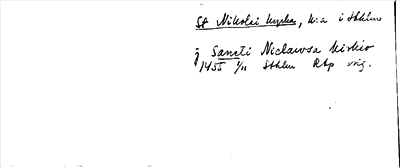 St Nikolai kyrka, k:a i Sthlm
j Sancti Niclawsa kirkio
1455 1/11 Sthlm RAp orig.